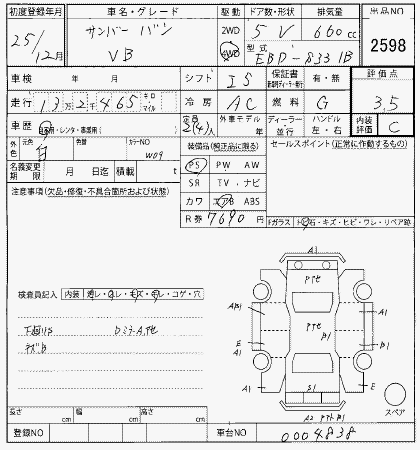 初度登録年月 車名・グレード 駆動 ドア数・形状 排気量 出品NO
25/12月 サンバー バン VB 2WD 4WD 5 V 660cc 2598
型式 EBD-S331B
車検 年 月 シフト IS 保証書 有・無 評価点
走行 13万2千465 キロ マイル 冷房 AC 燃料 G 3.5
車歴 自家用・レンタ・事業用( ) 定員 2(4)人 外車モデル 年 ディーラー 並行 ハンドル 左・右 内装評価 C
外色 元色 白 色替 カラーNO W09 装備品(純正品に限る) セールスポイント(正常に作動するもの)
名義変更期限 月 日迄 積載 t PS PW AW
注意事項(欠品・修復・不具合箇所および状態) SR TV ナビ
カワ エアB ABS
R券 7690 Fガラス トビ石・キズ・ヒビ・ワレ・リペア跡
検査員記入 内装 スレ・コゲ・穴
下廻りS
A1
Pテセ
A1
B1
E
A1
S1
A1
E
スペア
長さ cm 幅 cm 高さ cm
登録NO 車台NO 0004838